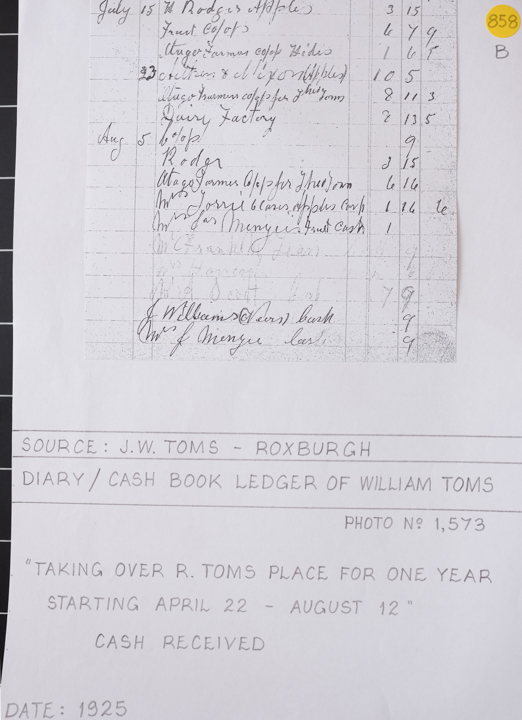 July 15 H Rodger apples 3 15
Fruit Co/op 6 7 9
Otago Farmers co/op Hides 1 6 5
23 & Nixon (Apples) 10 5
Otago Farmers co/op for 8 11 3
Dairy Factory 2 13 5
Aug 5 Co/op 9
Rodger 3 15
Otago Farmers Co/op for 6 16
Mrs 6 cases apples Cash 1 16
Mrs Jas Menzie Fruit Cash 1
7 9
J Williams (Pears) Cash 9
Mrs J Menzie Cash 9
858
B
SOURCE: J.W. TOMS - ROXBURGH
DIARY / CASH BOOK LEDGER OF WILLIAM TOMS
PHOTO Nº 1,573
"TAKING OVER R. TOMS PLACE FOR ONE YEAR
STARTING APRIL 22 - AUGUST 12"
CASH RECEIVED
DATE: 1925